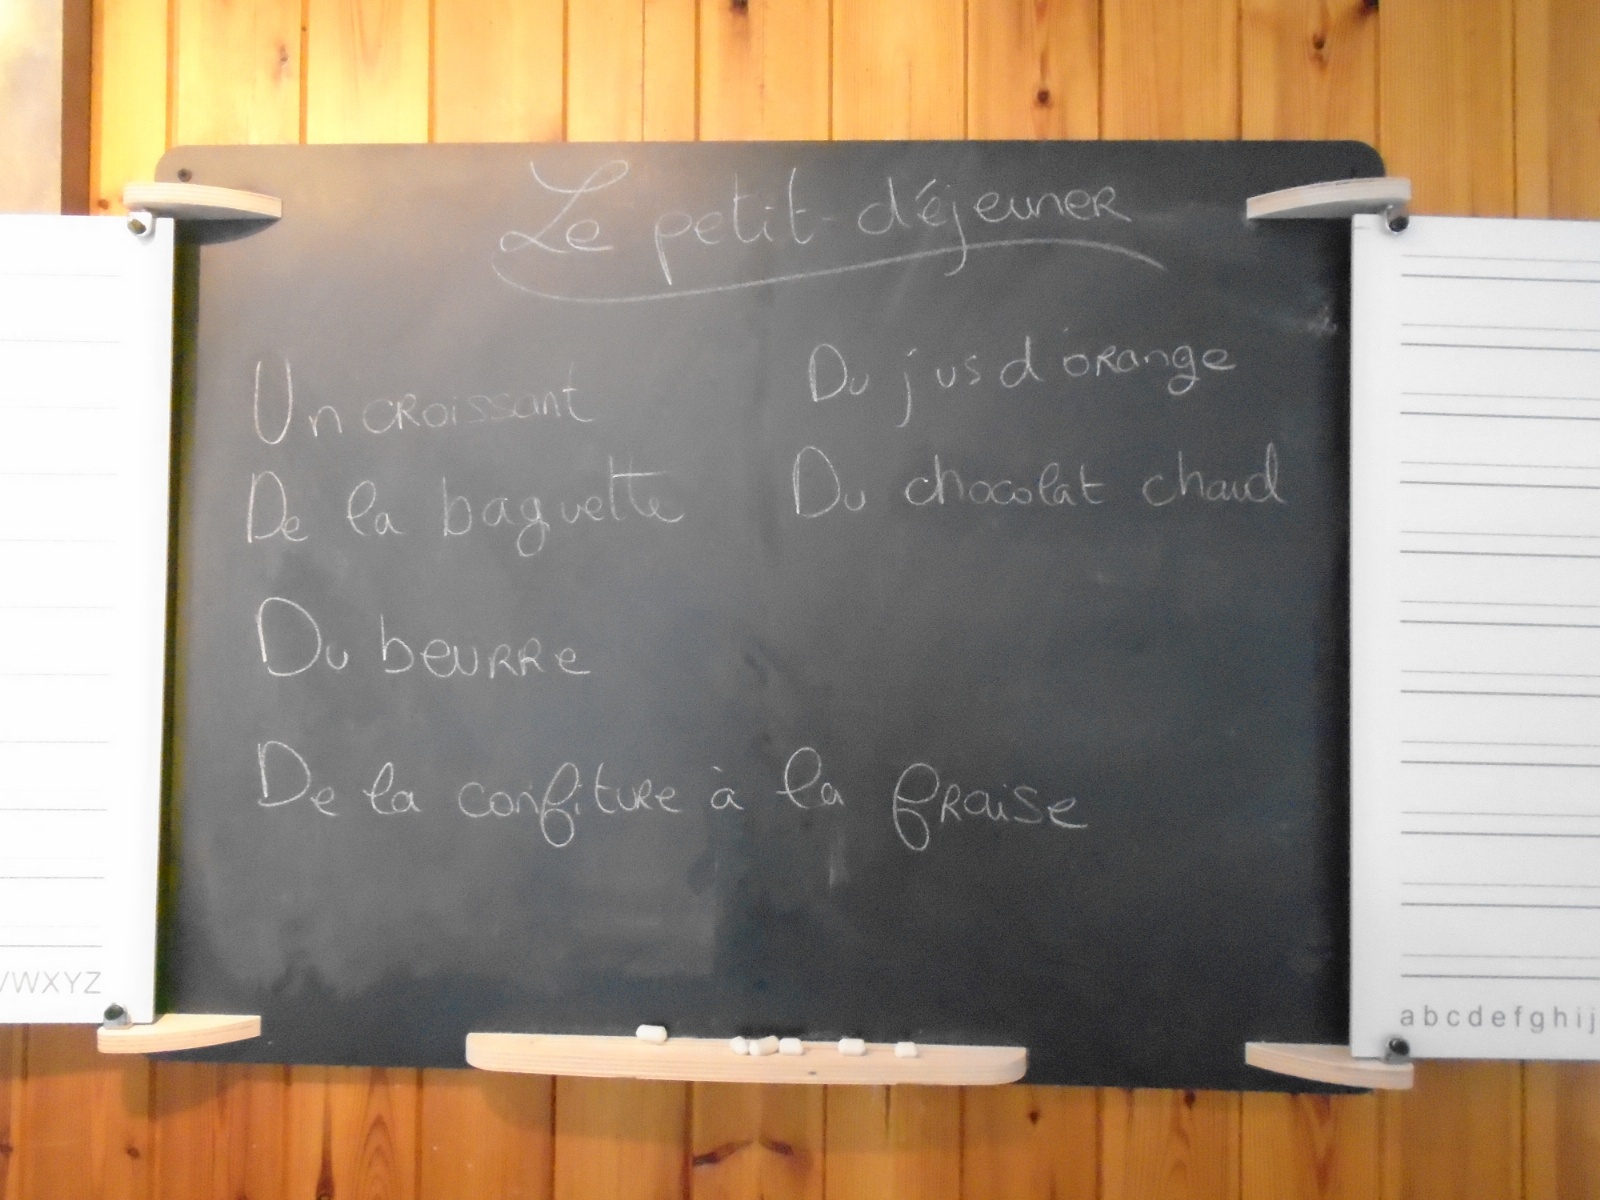 Le petit-déjeuner
Un croissant
De la baguette
Du beurre
De la confiture à la fraise
Du jus d'orange
Du chocolat chaud
WXYZ
abcdefghij